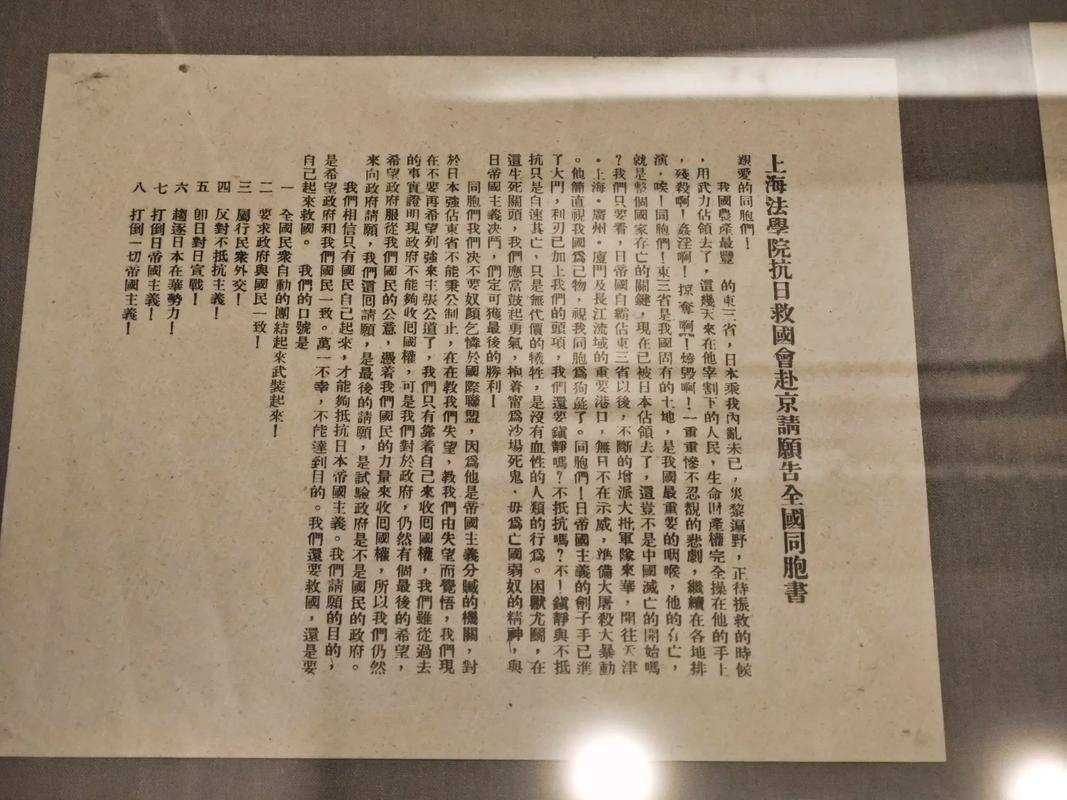 上海法學院抗日救國會赴京請願告全國同胞書
親愛的同胞們！
我國農產最豐　的東三省，日本乘我內亂未已，災黎遍野，正待振救的時候
，用武力佔領去了，這幾天來在他宰割下的人民，生命財產權完全操在他的手上
，殘殺啊！姦淫啊！掠奪啊！燒毀啊！一重重慘不忍覩的悲劇，繼續在各地排
演，唉！同胞們！東三省是我國固有的土地，是我國最重要的咽喉，他的存亡，
就是整個國家存亡的關鍵，現在已被日本佔領去了，這豈不是中國滅亡的開始嗎
？我們只要看，日帝國自霸佔東三省以後，不斷的增派大批軍隊來華，開往天津
。上海。廣州。廈門及長江流域的重要港口，無日不在示威，準備大屠殺大暴動
。他簡直視我國為己物，視我同胞為狗彘了。同胞們！日帝國主義的劊子手已進
了大門，利刃已加上我們的頭項，我們還要鎮靜嗎？不抵抗嗎？不！鎮靜與不抵
抗只是自速其亡，只是無代價的犧牲，是沒有血性的人類的行為。困獸尤鬬，在
這生死關頭，我們應當鼓起勇氣，抱着甯為沙場死鬼，毋為亡國弱奴的精神，與
日帝國主義決鬥，們定可獲最後的勝利！
同胞們我們決不要奴顏乞憐於國際聯盟，因為他是帝國主義分贓的機關，對
於日本強佔東省不能秉公制止，在在教我們失望，教我們由失望而覺悟，我們現
在不要再希望列強來主張公道了，我們只有靠着自己來收囘國權，我們雖從過去
的事實證明現政府不能夠收囘國權，可是我們對於政府，仍然有個最後的希望，
希望政府服從我們國民的公意，憑着我們國民的力量來收囘國權，所以我們仍然
來向政府請願，我們這囘請願，是最後的請願，是試驗政府是不是國民的政府。
我們相信只有國民自己起來，才能夠抵抗日本帝國主義。我們請願的目的，
是希望政府和我們國民一致。萬一不幸，不能達到目的。我們還要救國，還是要
自己起來救國。　我們的口號是
一　全國民衆自動的團結起來武裝起來！
二　要求政府與國民一致！
三　厲行民衆外交！
四　反對不抵抗主義！
五　卽日對日宣戰！
六　趨逐日本在華勢力！
七　打倒日帝國主義！
八　打倒一切帝國主義！